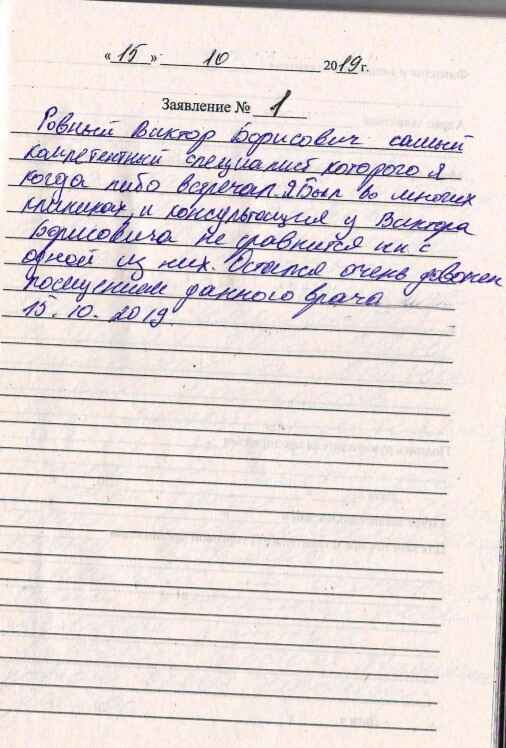 «15» 10 2019 г.
Заявление № 1
Ровный Виктор Борисович самый
компетентный специалист которого я
когда либо встречал. Я был во многих
клиниках и консультация у Виктора
Борисовича не сравнится ни с
одной из них. Остался очень доволен
посещением данного врача
15. 10. 2019